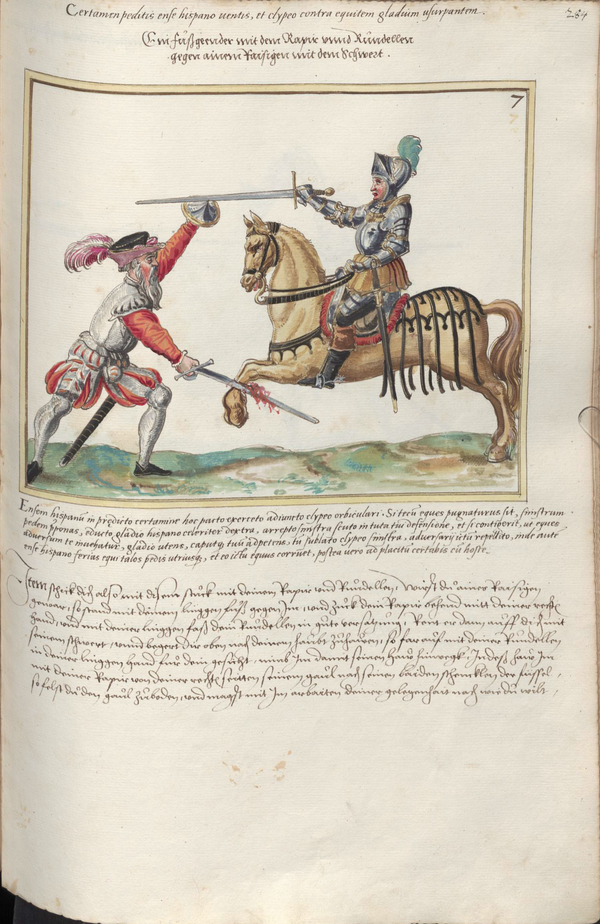 Certamen peditis ense hispano utentis, et clypeo contra equitem gladium usurpantem.
284
Ein fůßgeender mit dem Rapir vnnd Rundellen
gegen ainem Raisigen mit dem Schwert.
7
Ensem hispanum in prędicto certamine hoc pacto exerceto adiuncto clypeo orbiculari. Si tecum eques pugnaturus sit, sinistrum
pedem pponas, educto gladio hispano celeriter dextra, arrepto sinistra scuto in tuta tui defensione, et si contigerit, ut eques
adversum te invehatur, gladio utens, caputque tuum adpetens, tu sublato clypeo sinistra, adversarij ictum repellito, inde autem
ense hispano ferias equi talos pedis utriusque, et eo ictu equus corruet, postea vero ad placitum certabis cum hoste.
Item schick dich also mit disem stuck mit deinem Rapir vnd Rundellen, Wirst du aines Raisigen
gewar, so stand mit deinem linggen fůß gegen Im, vnd zuck dein Rapir behend mit deiner rechten
hand, vnd mit deiner linggen faß dein Rundellen in gůte versatzung, Rent er dann auff dich mit
seinem schwert, vnnd begert dir oben nach deinem haubt zuhawen, so far auf mit deiner Rundellen
in deiner linggen hand für dein gesicht, nim Im damit seinen haw hinwegk, Indeß haw Im
mit deiner Rapir von deiner rechten seitten seinem gaul nach seinen baiden schencklen der füssel,
so felst du den gaul zu boden, vnd magst mit Im arbaiten deiner gelegenhait nach wie du wilt.